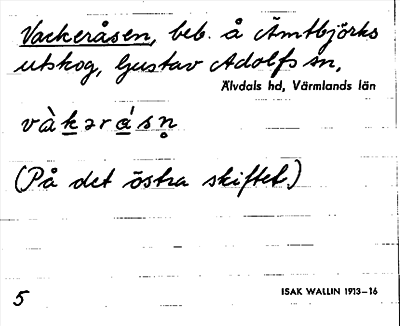 Vackeråsen, beb. å Ämtbjörks
utskog, Gustav Adolfs sn,
Älvdals hd, Värmlands län
vàkərásn̥
(På det östra skiftet)
5
ISAK WALLIN 1913–16